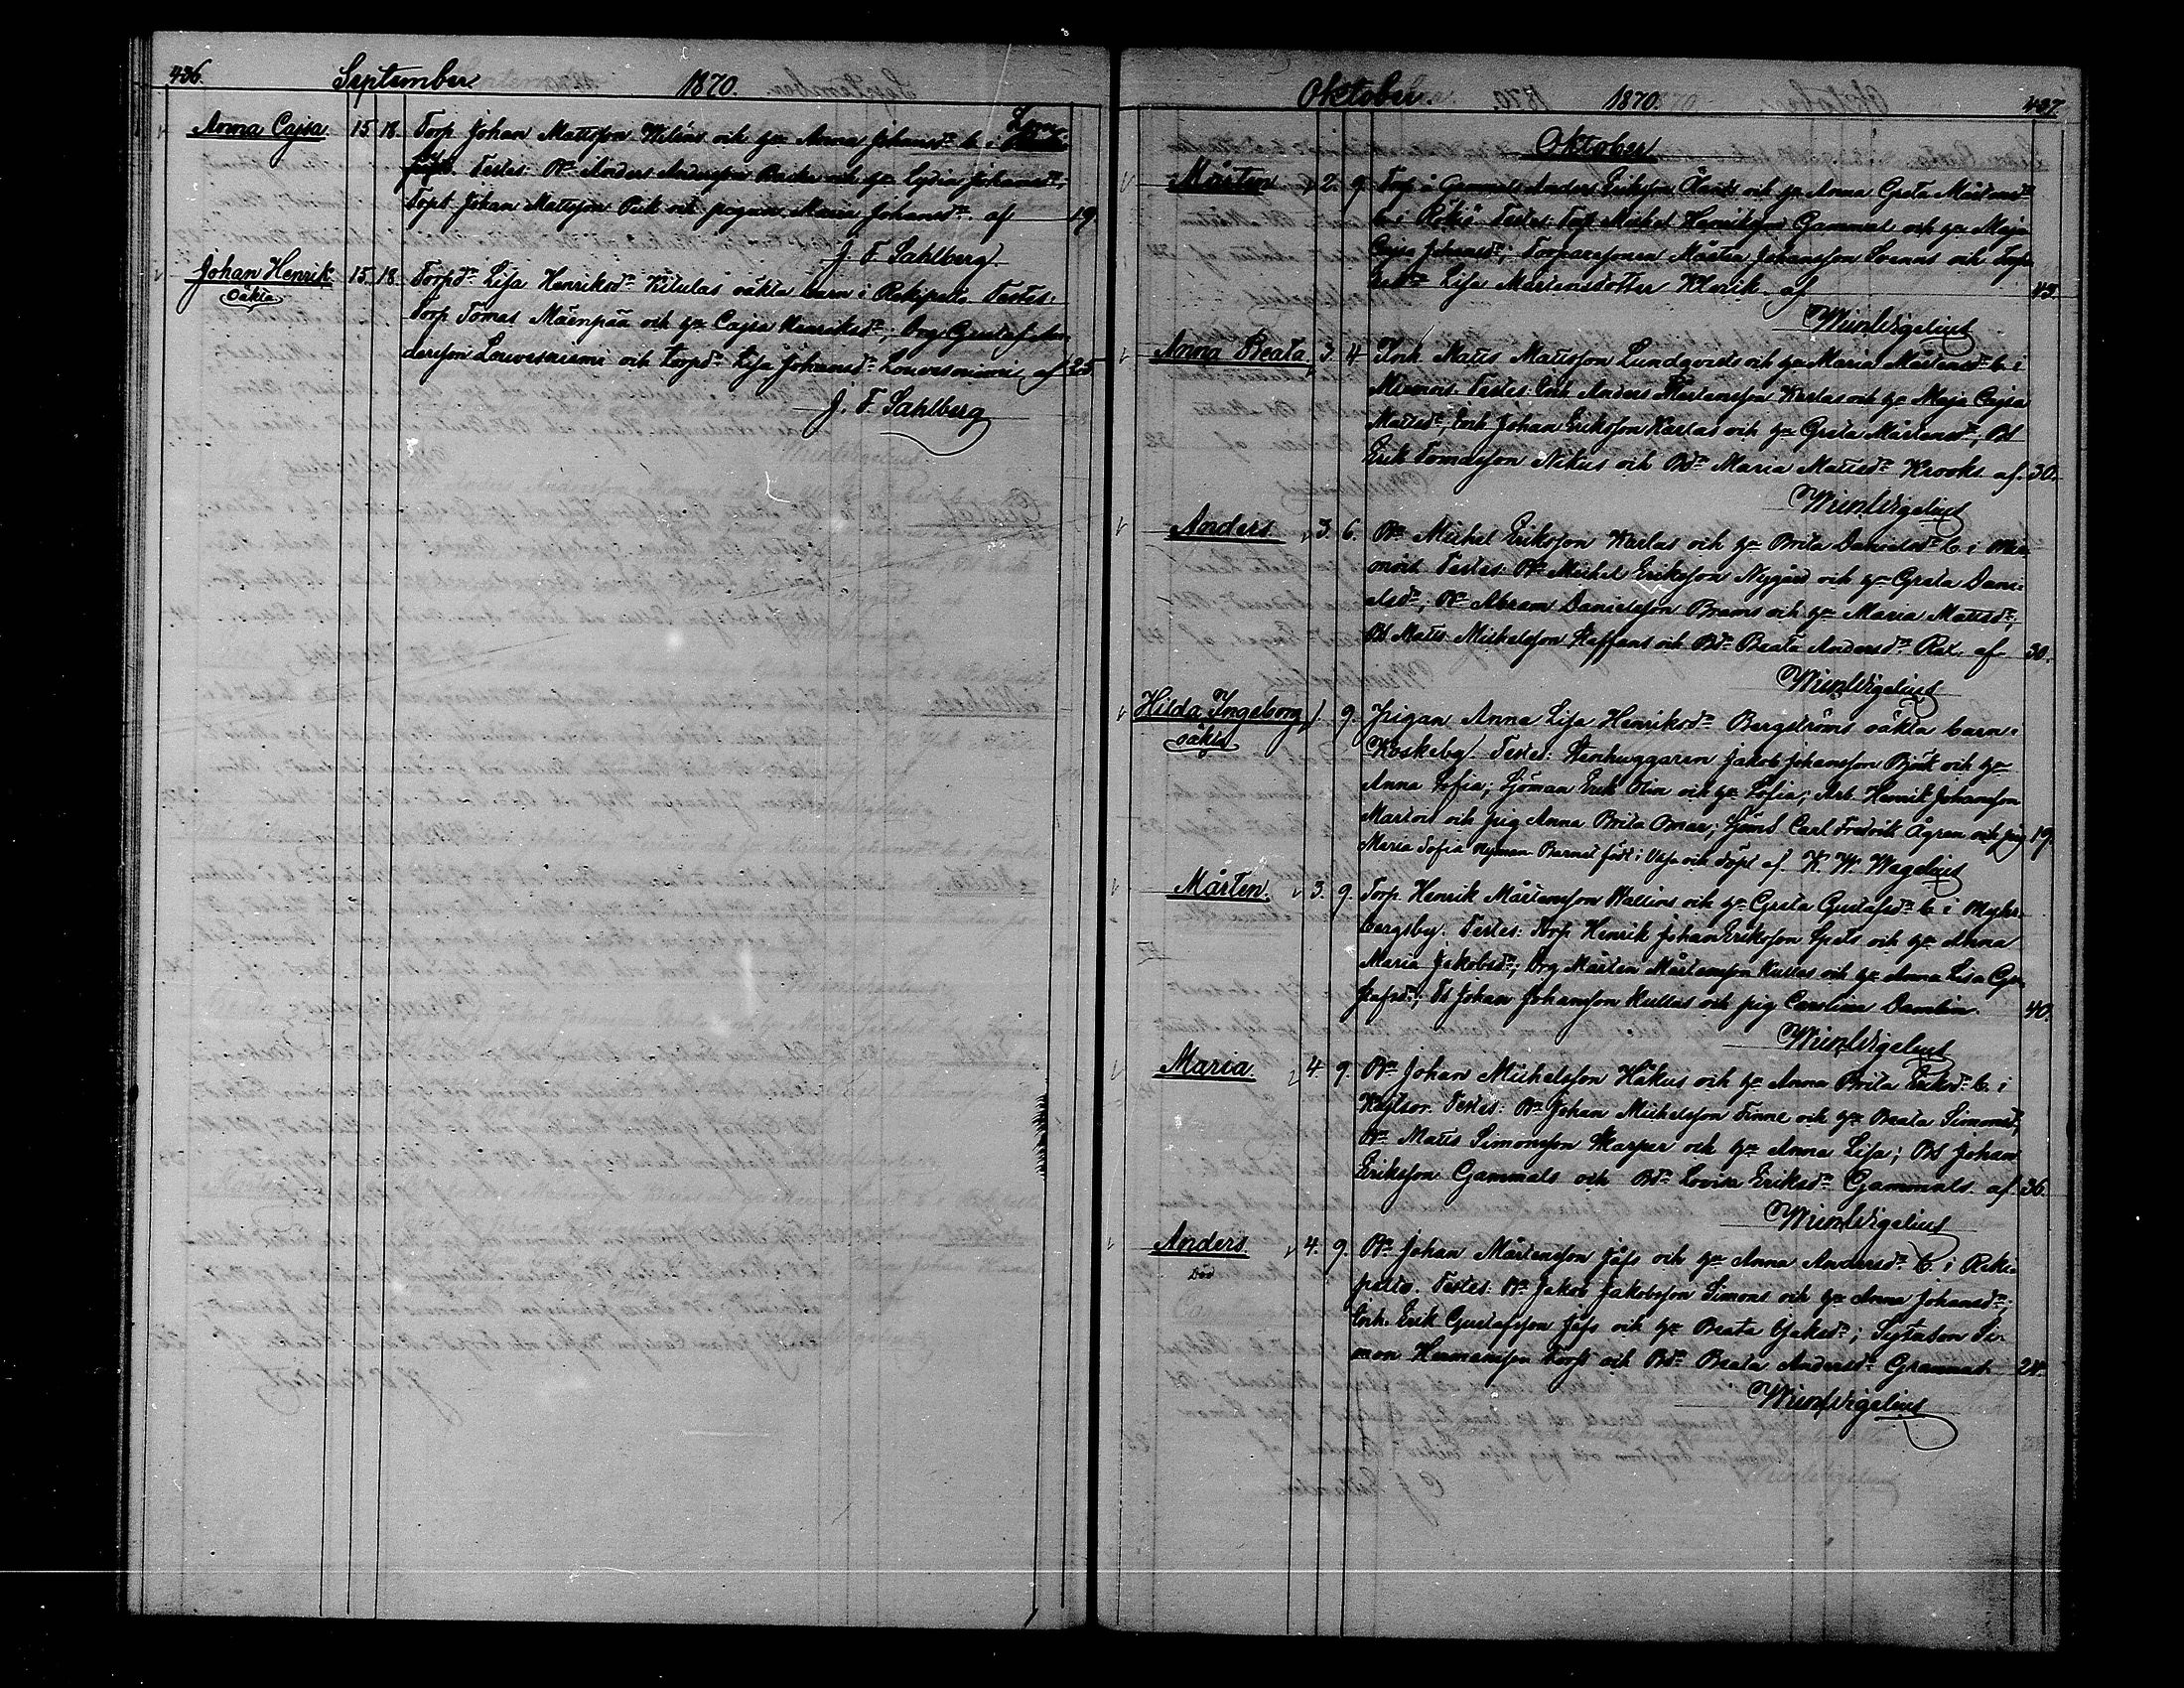 436. September 1870.
Anna Cajsa. 15. 18. Torp Johan Mattsson Wiléns och h. Anna Johansdr b. i
Testes: Bn Anders Andersson Backa och h. Lydia Johansdr;
Tops Johan Mattsson och pigan Maria Johansdr. af 19
J. F. Sahlberg.
Johan Henrik 15. 18. Torpdr Lisa Henriksdr Kitulas oäkta barn i Rekipelto. Testes:
oäkta
Torp Tomas Mäenpää och h. Cajsa Henriksdr; Drg Gustaf An-
dersson Louvesniemi och torpdr Lisa Johansdr Louvesniemi af 25
J. F. Sahlberg
Oktober. 1870. 437.
Oktober
Mårten 2. 9. Torp å Gammels Anders Eriksson Ölands och h. Anna Greta Mårtensdr
b. i Rökiö. Testes: Torp Michel Henriksson Gammel och h. Maja
Cajsa Johansdr; Torparesonen Mårten Johansson Svenns och
Lisa Mårtensdotter Klerik. af 43.
Wm Wigelius
Anna Beata 3. 4 Inh Matts Mattsson Lundqvists och h. Maria Mårtensdr b. i
Miemois. Testes: Inh Anders Mårtensson Karlas och h. Maja Cajsa
Mattsdr; Inh Johan Eriksson Karlas och h. Greta Mårtensdr, Bs
Erik Tomasson Nikus och Bdr Maria Mattsdr Krooks af. 30.
Wm Wigelius
Anders 3. 6. Bn Michel Eriksson Karlas och h. Brita Danielsdr b. i Mie-
mois. Testes: Bn Michel Eriksson Nygård och h. Greta Dani-
elsdr; Bn Abram Danielsson Brams och h. Maria Mattsdr;
Bs Matts Michelsson Staffans och Bdr Beata Andersdr Rax. af 30.
Wm Wigelius
Hilda Ingeborg 1. 9. Pigan Anna Lisa Henriksdr Bergströms oäkta barn i
oäkta
Koskeby. Testes: Stenhuggaren Jakob Johansson Björk och h.
Anna Sofia; Sjöman Erik Olin och h. Sofia; Arb. Henrik Johansson
Martois och pig Anna Brita Omar; Sjöm Carl Fredrik Ågren och pig 19.
Maria Sofia Nyman. Barnet födt i Vasa och döpt af K. W. Wegelius
Mårten. 3. 9. Torp. Henrik Mårtensson Wallins och h. Greta Gustafsdr b. i Myhr-
bergsby. Testes: Torp Henrik Johan Eriksson Spets och h. Anna
Maria Jakobsdr; Drg Mårten Mårtensson Kullas och h. Anna Lisa Gu-
stafsdr; Ts Johan Johansson Kullas och pig Carolina Damlin. 40.
Wm Wigelius
Maria 4. 9. Bn Johan Michelsson Håkus och h. Anna Brita Eriksdr b. i
Kaitsor. Testes: Bn Johan Michelsson Finne och h. Beata Simonsdr;
Bn Matts Simonsson Skarper och h. Anna Lisa; Bs Johan
Eriksson Gammals och Bdr Lovisa Eriksdr Gammals. af 36.
Wm Wigelius
Anders 4. 9. Bn Johan Mårtensson Jåfs och h. Anna Andersdr b. i Reki-
Död
pelto. Testes: Bn Jakob Jakobsson Simons och h. Anna Johansdr;
Inh. Erik Gustafsson Jåfs och h. Beata Jakobsdr; Sytadsn Si-
mon Hermansson Torp och Bdr Beata Andersdr Grannas 24.
Wm Wigelius